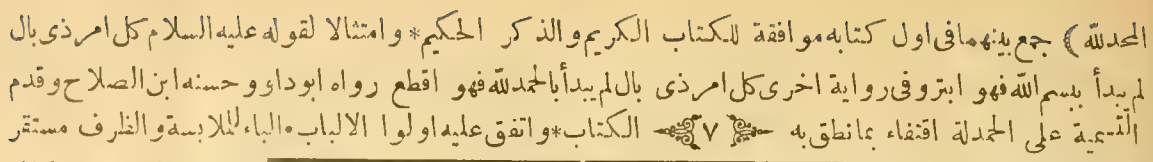 الحمدلله ﴾ جمع بينهما فى اول كتابه موافقة للكتاب الكريم والذكر الحكيم * وامتثالا لقوله عليه السلام كل امر ذى بال
لم يبدأ ببسم الله فهو ابتر وفى رواية اخرى كل امر ذى بال لم يبدأ بالحمدلله فهو اقطع رواه ابوداود وحسنه ابن الصلاح وقدم
التسمية على الحمدلة اقتفاء بما نطق به ﴿ ٧ ﴾ الكتاب * واتفق عليه اولوا الالباب والباء للملابسة والظرف مستقر